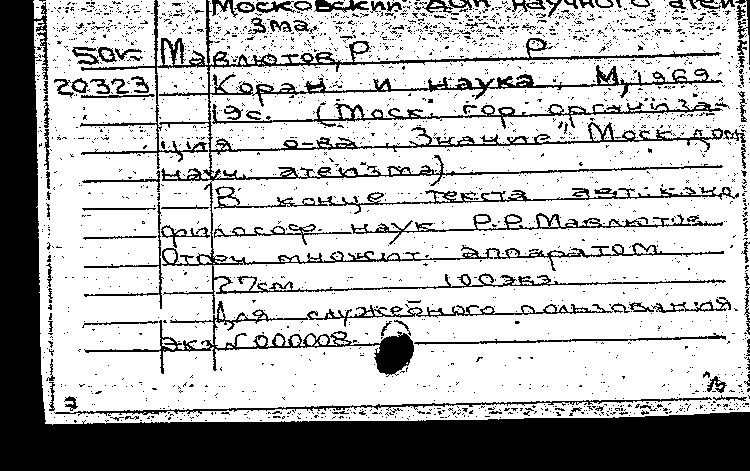 Московский дом научного атеи-
зма.
50к Мавлютов, Р Р
20323 Коран и наука, М, 1969.
19с. (Моск. гор. организа-
ция о-ва „Знание" Моск. дом
науч. атеизма).
В конце текста авт.: канд.
философ наук Р.Р.Мавлютов.
Отпеч множит. аппаратом
27см 100экз.
Для служебного пользования
Экз № 000008.